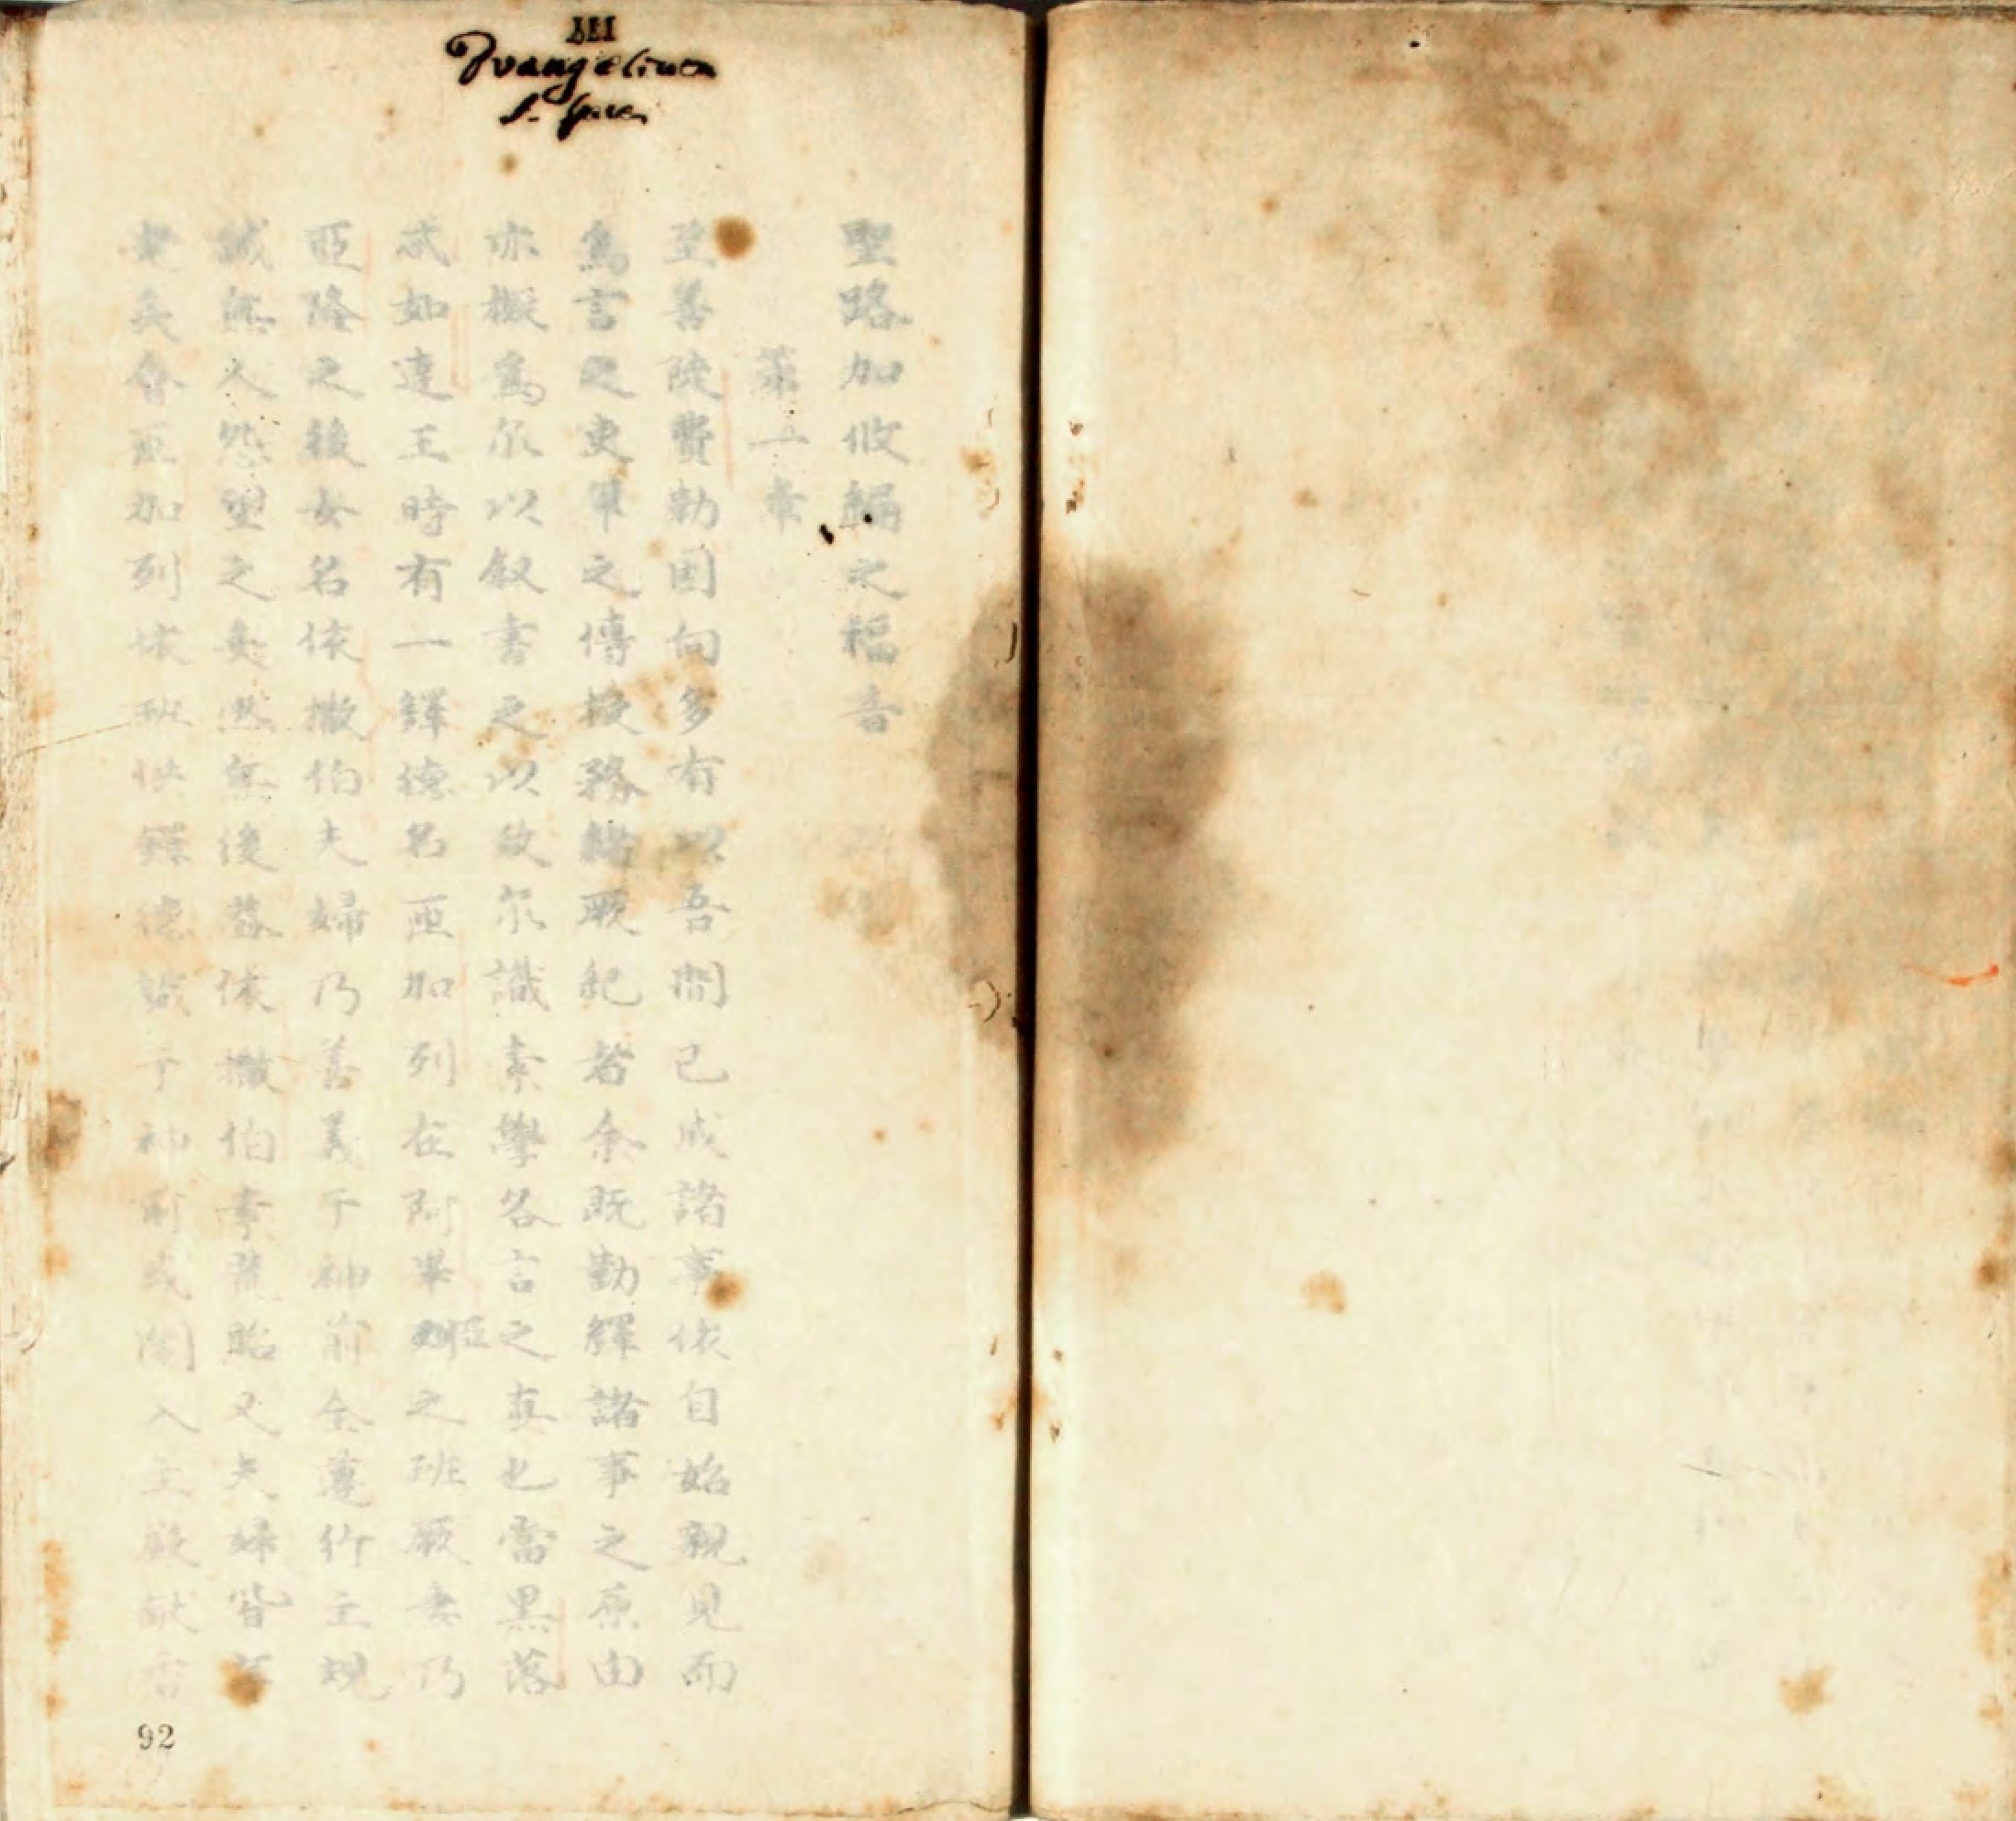 III
Evangelium
S. Lucae
聖路加攸編之福音
第一章
至善陡費勒因向多有以吾間已成諸事依自始親見而
為言吏輩之傳授務緒厥紀者余既勤繹諸事之原由
亦擬為尔以叙書之以致尔識素學各言之真也當黑落
忒如達王時有一鐸德名亞加列在阿畢亞之班厥妻乃
亞隆之後女名依撒伯夫婦乃善義于神前全遵行主規
誡無人怨之矣然無後蓋依撒伯素荒胎又夫婦皆
老矣會亞加列依班供鐸德職于神前或鬮入主殿献香
92